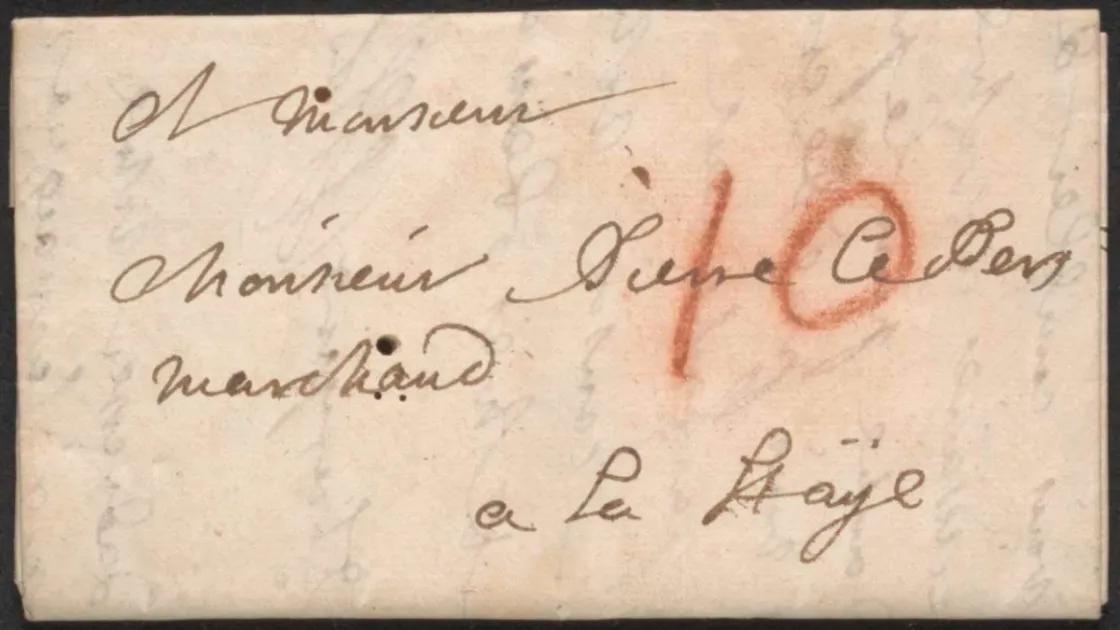 A Monsieur
10
Monsieur Pierre Le Bers
marchand
a La Haÿe